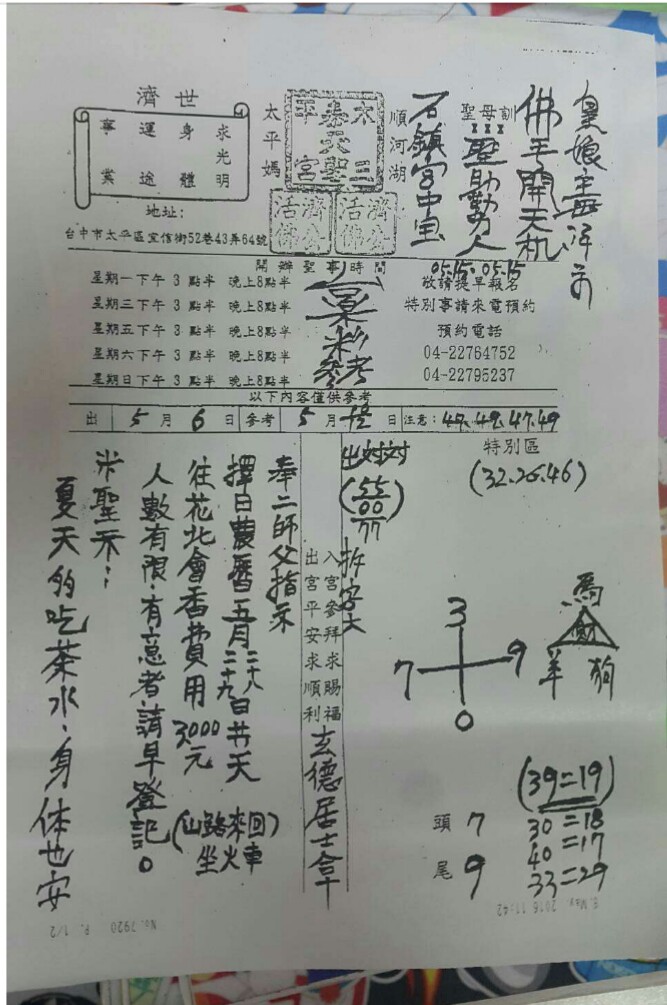 皇娘壽誕示
佛手開天机
聖母訓
聖助勤人
石鎮宮中宝
順河湖
太平媽
濟世
求光明
身體
運途
事業
濟公活佛
濟公活佛
地址：
台中市太平區宜信街52巷43弄64號
開辦聖事時間
星期一下午 3 點半 晚上8點半
星期三下午 3 點半 晚上8點半
星期五下午 3 點半 晚上8點半
星期六下午 3 點半 晚上8點半
星期日下午 3 點半 晚上8點半
參考
05.15.05.15
敬請提早報名
特別事請來電預約
預約電話
04-22764752
04-22795237
以下內容僅供參考
出 5 月 6 日 參考 5 月 日 注意： 49.47.49
特別區
(32.26.46)
出対対
(55
00
77)
拆字大
馬
財
羊 狗
3
7 9
0
(39=19)
30=18
40=17
33=29
頭 7
尾 9
入宮參拜求賜福
出宮平安求順利
玄德居士拿
奉二師父指示
擇日農曆五月二十八二十九日共二天
往花北會香費用3000元
(山路來回坐火車)
人數有限.有意者.請早登記。
米聖示：
夏天的吃茶水.身体也安
E.May. 2016 11:42
No.7920 P. 1/2